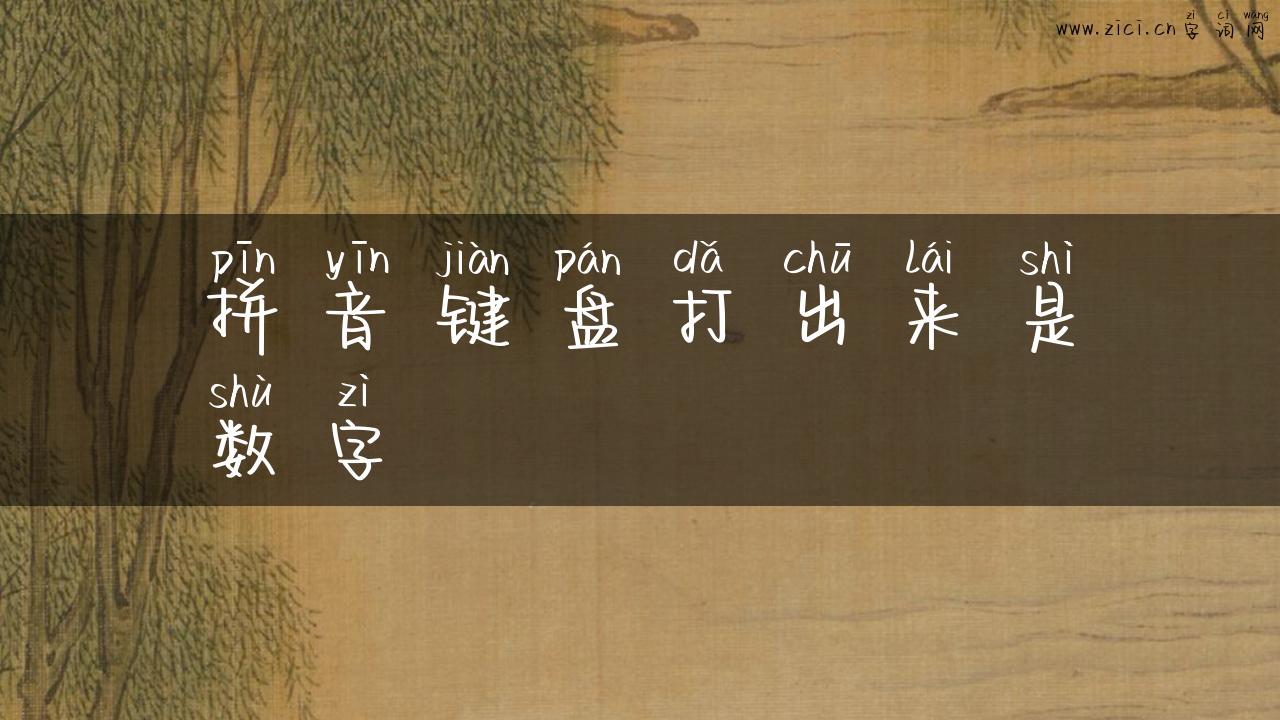 zì cí wǎng
www.zici.cn 字 词 网
pīn yīn jiàn pán dǎ chū lái shì
拼 音 键 盘 打 出 来 是
shù zì
数 字